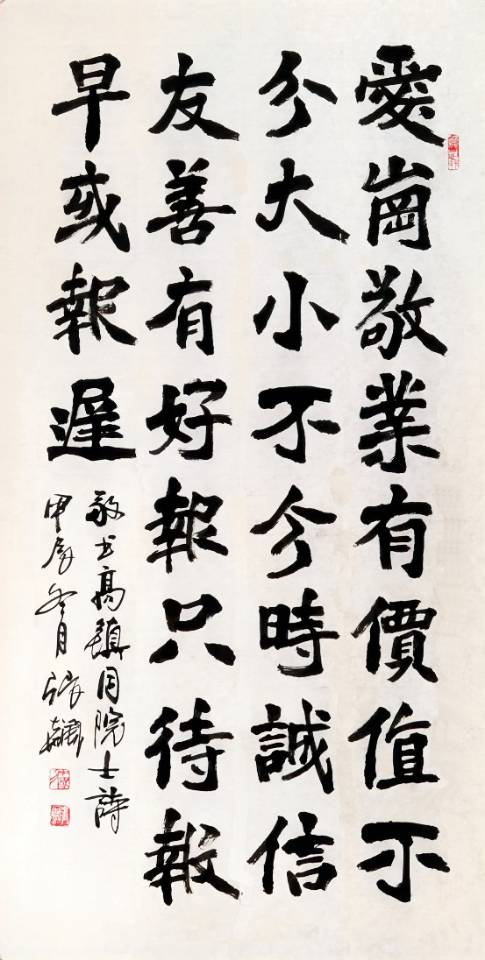 愛崗敬業有價值不
分大小不分時誠信
友善有好報只待報
早或報遲
敬书高鎮同院士詩
甲辰冬月張飆